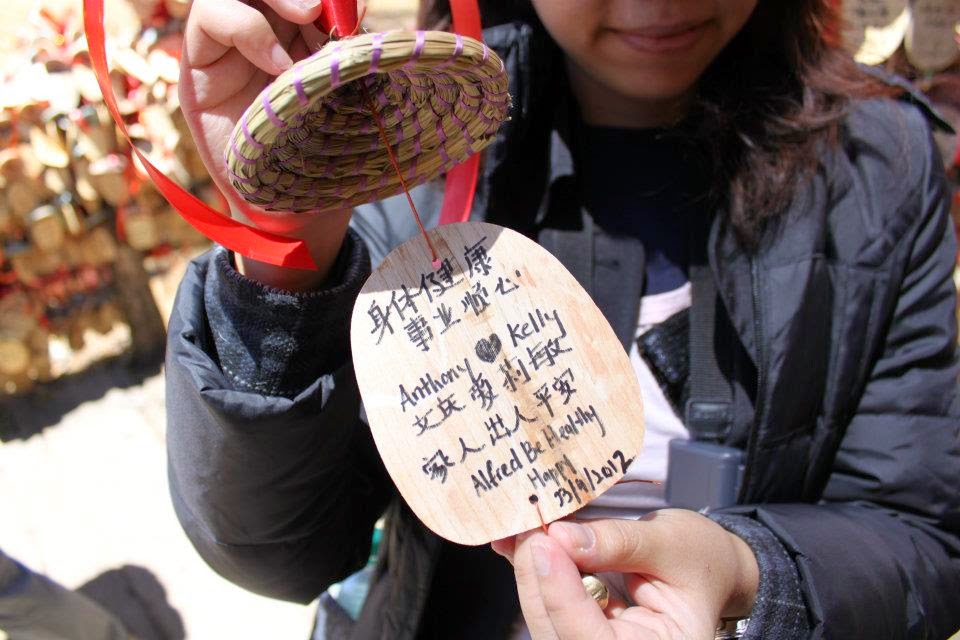 身体健康
事业顺心
Anthony ♥ Kelly
文庆爱莉敏
家人出入平安
Alfred Be Healthy
Happy
23/9/2012